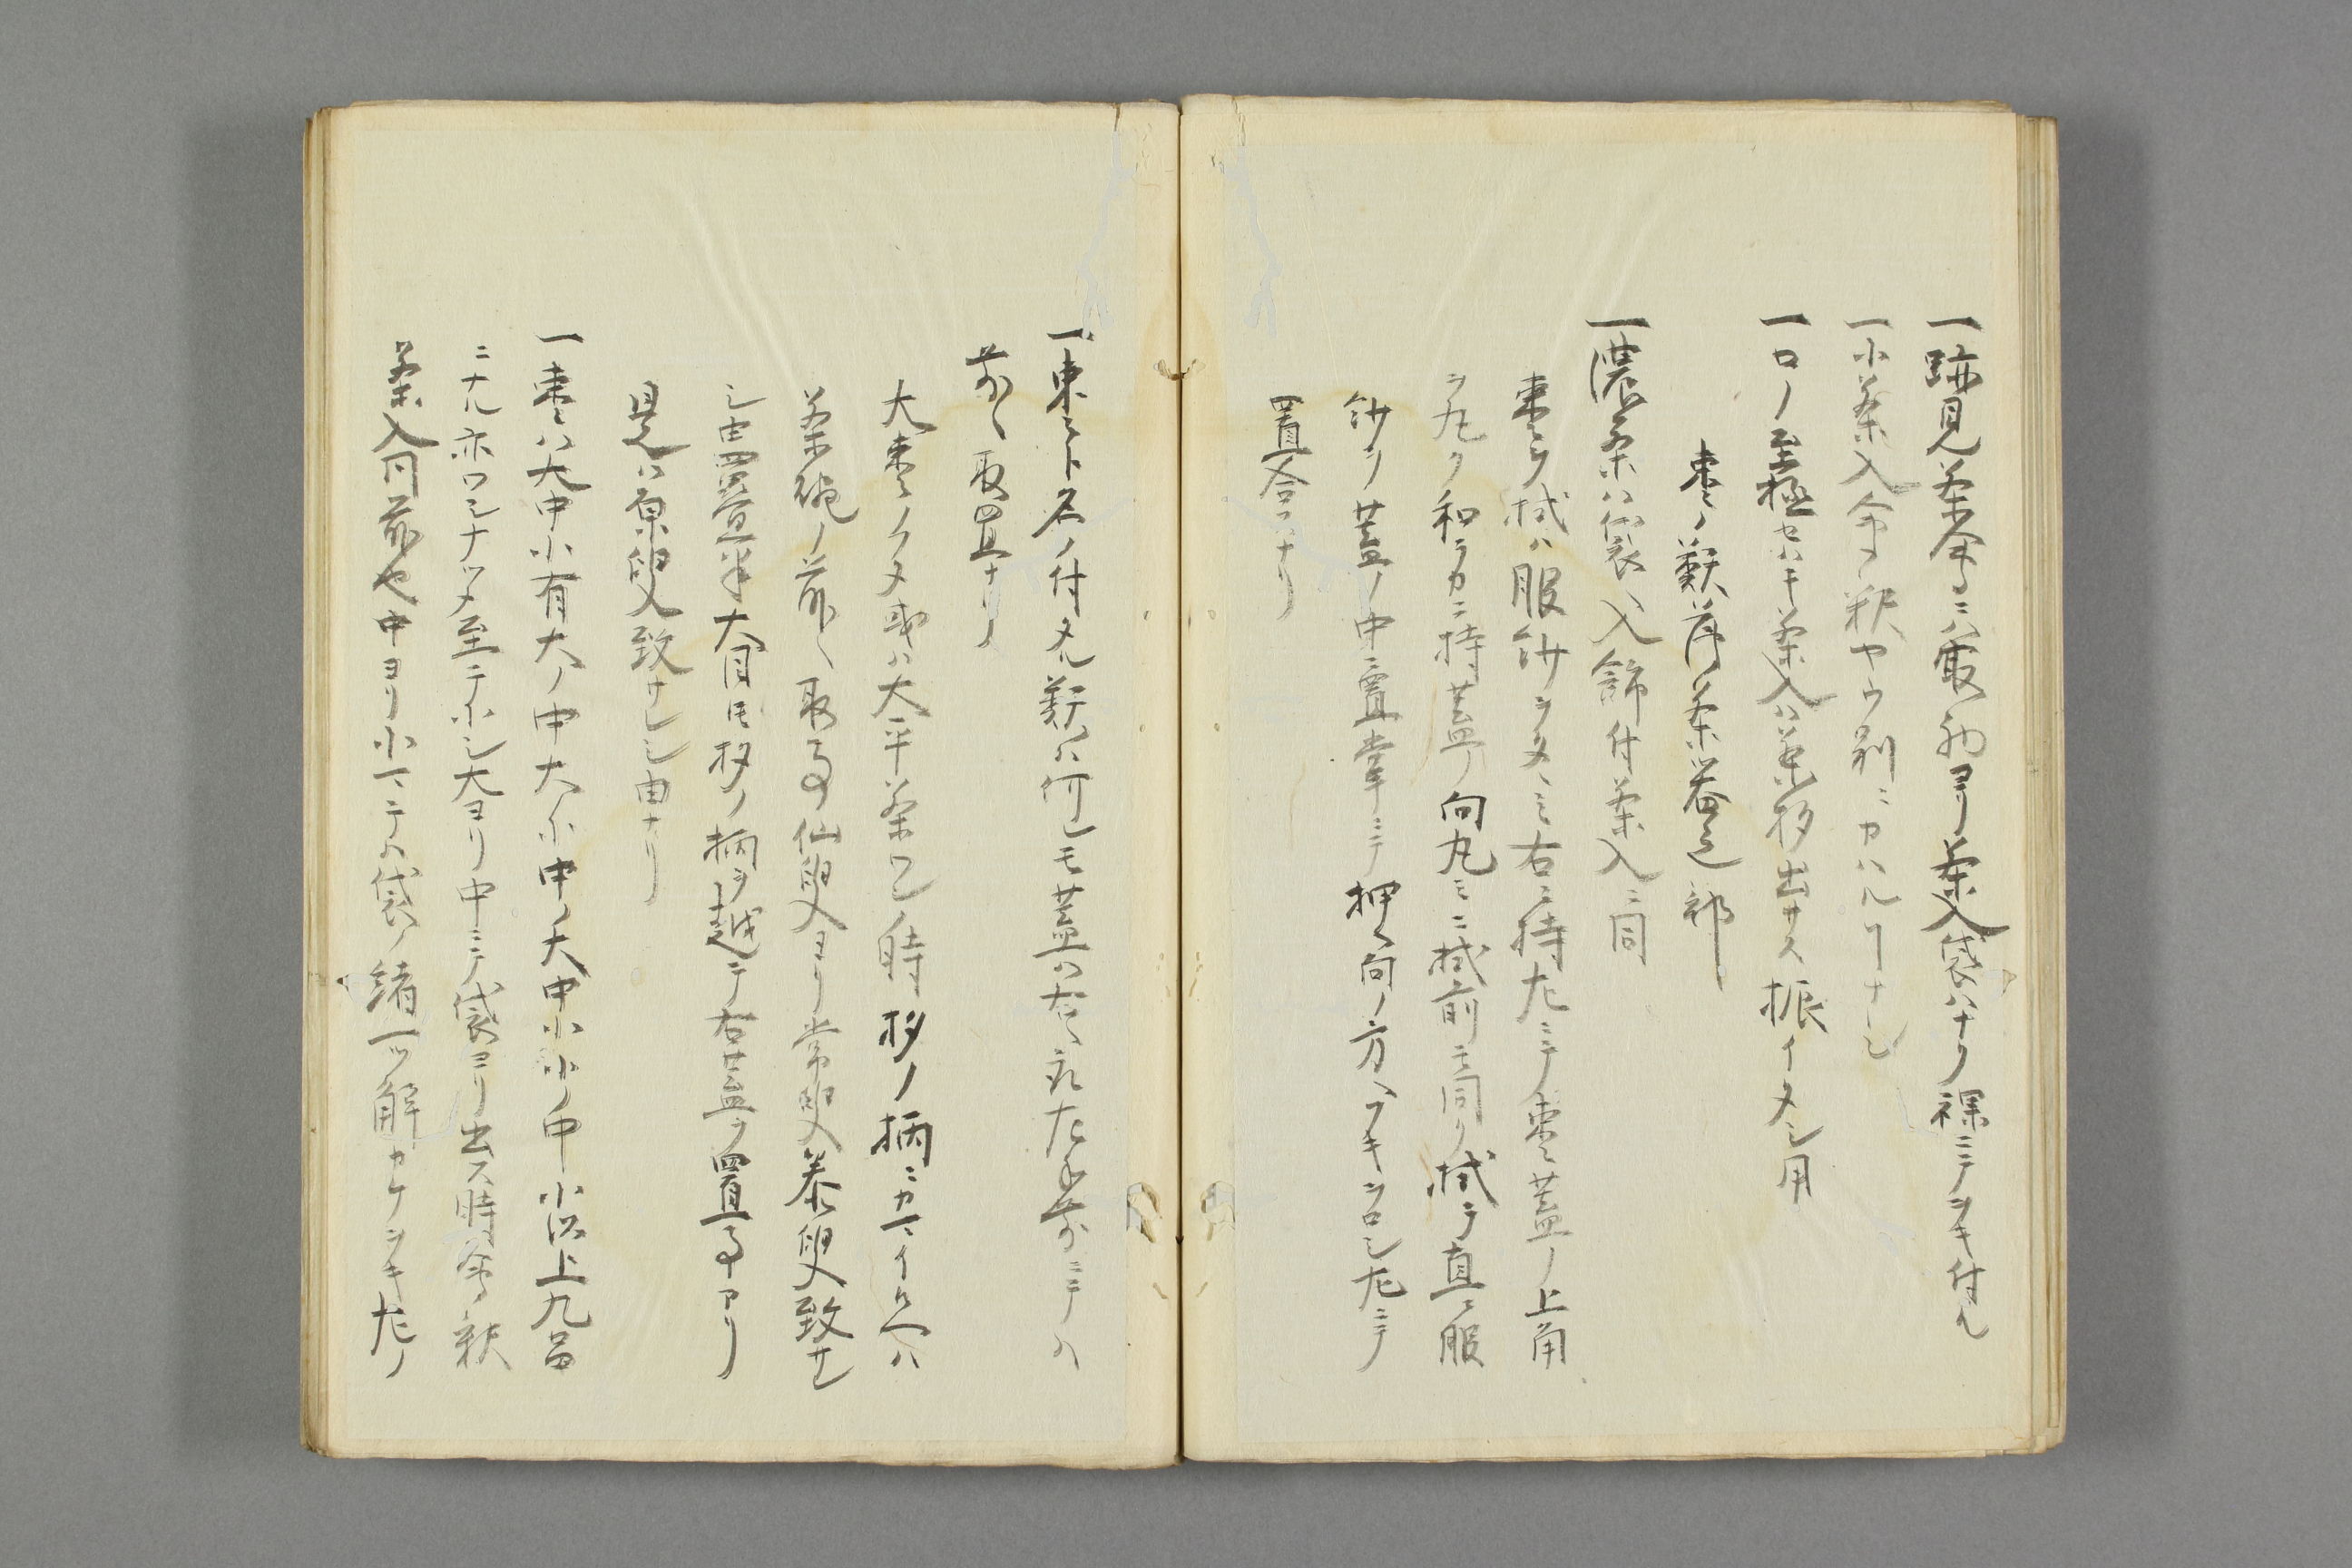 一跡見茶会ニハ最初ヨリ茶入袋ハナク裸ニテヲキ付ル
一小茶入会釈ヤウ別ニカハルヿナシ
一口ノ至極セハキ茶入ハ茶杓出サス振イタシ用
棗ノ類薄茶器之部
一濃茶ハ袋ヘ入餝付茶入ニ同
棗ヲ拭ハ服紗ヲタヽミ右ニ持左ニテ棗ノ蓋ノ上角
ヲ丸ク和ラカニ持蓋ノ向丸ミニ拭前ニ同ク拭ヲ直ニ服
紗ヲ蓋ノ中ニ置掌ニテ押ヘ向ノ方ヘフキシロシ左ニテ
置合スナリ
一棗ト名ノ付タル類ハ何レモ蓋ハ右ヘ取左手前ニテハ
前ヘ取置ナリ
大棗ノクタ或ハ大平茶ワンノ時杓ノ柄ニカマイ候ヘハ
茶碗ノ前ヘ取る事仙叟ヨリ常叟泰叟致サレ
シ由四畳半大目ニモ杓ノ柄ヲ越テ右ヘ蓋ヲ置事アリ
是ハ原叟致サレシ由ナリ
一棗ハ大中小有大ノ中大小中ノ大中小小ノ中小以上九品
ニナル亦ワシナツメ至テ小シ大ヨリ中ニテ袋ヨリ出ス時会釈
茶入同前也中ヨリ小マテハ袋ノ緒一ツ解カケヲキ左ノ